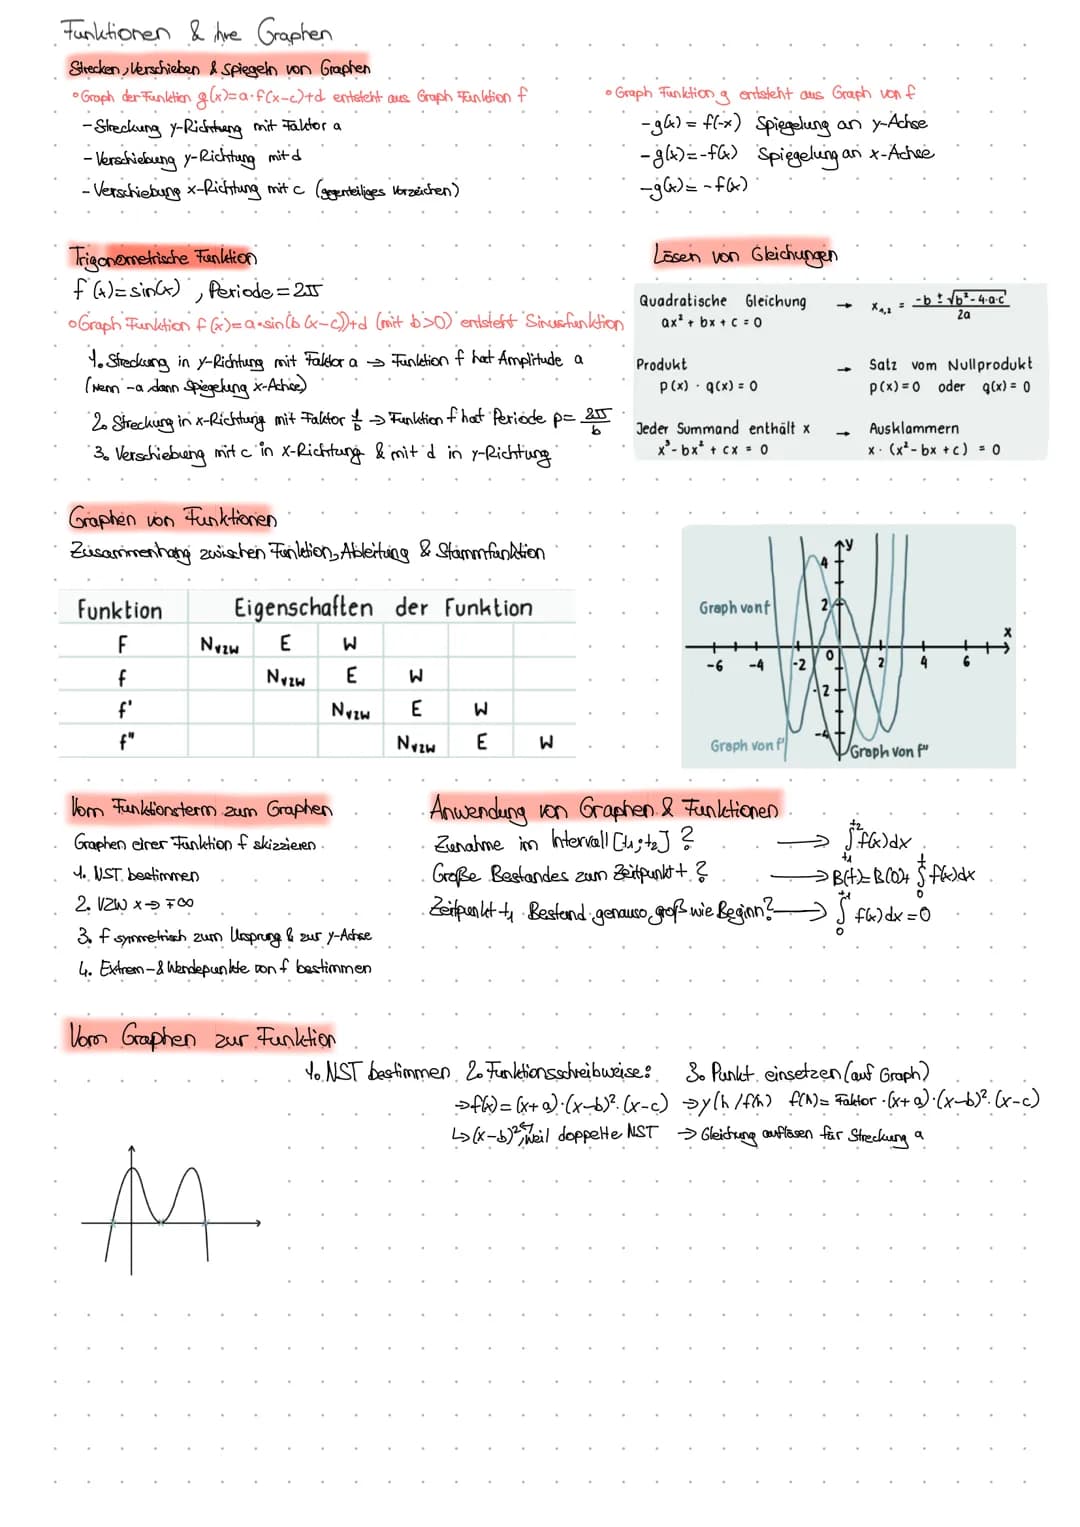 Funktionen & ihre Graphen
Strecken, Verschieben & Spiegeln von Graphen
• Graph der Funktion g(x)=a·f(x-c)+d entsteht aus Graph Funktion f
- Streckung y-Richtung mit Faktor a
- Verschiebung y-Richtung mit d
- Verschiebung x-Richtung mit c (gegenteiliges Vorzeichen)
• Graph Funktion g entsteht aus Graph von f
- g(x) = f(-x) Spiegelung an y-Achse
- g(x)=-f(x) Spiegelung an x-Achse
- g(x) = -f(x)
Trigonometrische Funktion
f(x)=sin(x), Periode = 2π
• Graph Funktion f(x)=a·sin(b(x-c))+d (mit b>0) entsteht Sinusfunktion
1. Streckung in y-Richtung mit Faktor a → Funktion f hat Amplitude a
(wenn -a dann Spiegelung x-Achse)
2. Streckung in x-Richtung mit Faktor 1/b → Funktion f hat Periode p= 2π/b
3. Verschiebung mit c in x-Richtung & mit d in y-Richtung
Lösen von Gleichungen
Quadratische Gleichung → x₁,₂ = (-b ± √(b² - 4·a·c))/2a
ax² + bx + c = 0
Produkt → Satz vom Nullprodukt
p(x) · q(x) = 0 p(x) = 0 oder q(x) = 0
Jeder Summand enthält x → Ausklammern
x³ - bx² + cx = 0 x · (x² - bx + c) = 0
Graphen von Funktionen
Zusammenhang zwischen Funktion, Ableitung & Stammfunktion
Funktion Eigenschaften der Funktion
F N_VZW E W
f N_VZW E W
f' N_VZW E W
f" N_VZW E W
y
4
Graph von f 2
x
-6 -4 -2 0 2 4 6
-2
-4
Graph von f' Graph von f"
Vom Funktionsterm zum Graphen
Graphen einer Funktion f skizzieren
1. NST bestimmen
2. VZW x→ ∓∞
3. f symmetrisch zum Ursprung & zur y-Achse
4. Extrem- & Wendepunkte von f bestimmen
Anwendung von Graphen & Funktionen
Zunahme im Intervall [t₁;t₂] ? → ∫_{t₁}^{t₂} f(x)dx
Große Bestandes zum Zeitpunkt t ? → B(t)= B(0)+ ∫_0^t f(x)dx
Zeitpunkt t₁ Bestand genauso groß wie Beginn? → ∫_0^{t₁} f(x)dx =0
Vom Graphen zur Funktion
1. NST bestimmen 2. Funktionsschreibweise: 3. Punkt einsetzen (auf Graph)
→ f(x) = (x+a)·(x-b)²·(x-c) → y(h / f(h) f(h)= Faktor ·(x+a)·(x-b)²·(x-c)
↳ (x-b)², weil doppelte NST → Gleichung auflösen für Streckung a